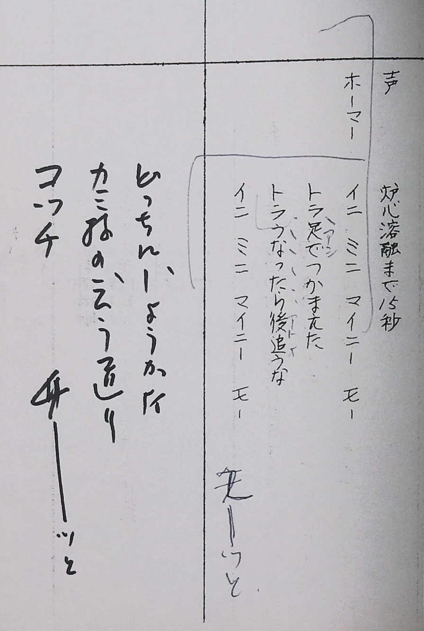 声　炉心溶融まで15秒
ホーマー　イニ ミニ マイニー モー
トラ足でつかまえた
トラうなったら後追うな
イニ ミニ マイニー モー
ーッと
どっちにしようかな
カミ様の云う通り
コッチ　ーッと